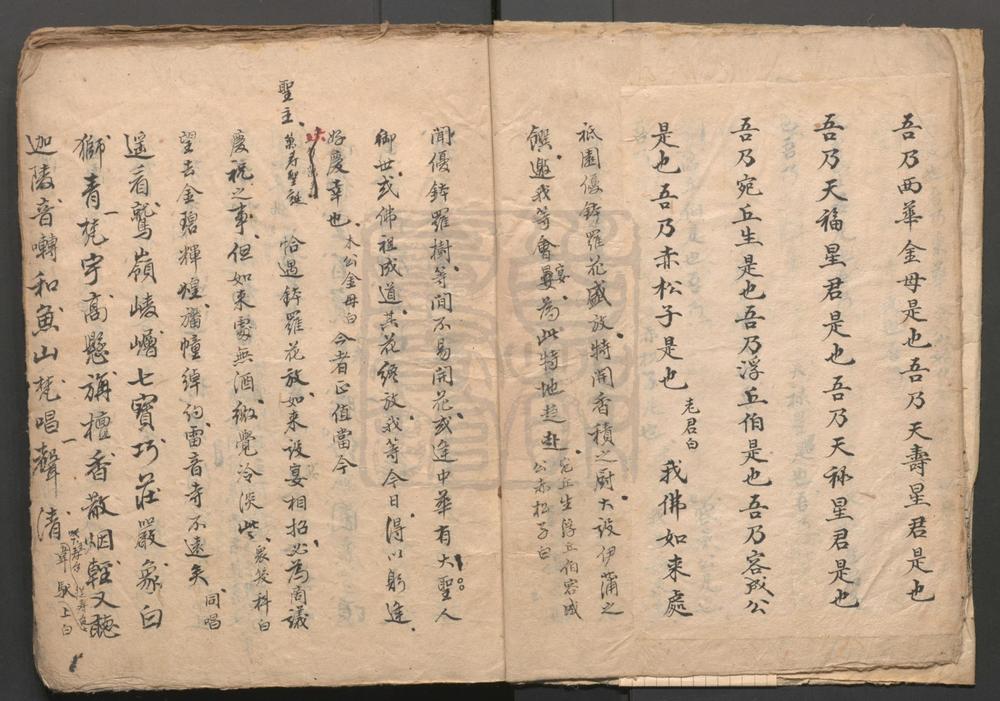 吾乃西華金母是也吾乃天壽星君是也
吾乃天福星君是也吾乃天祿星君是也
吾乃宛丘生是也吾乃浮丘伯是也吾乃容成公
是也吾乃赤松子是也老君白我佛如來處
祇園優鉢羅花盛放特開香積之厨大設伊蒲之
饌邀我等會宴為此特地趕赴宛丘生浮丘伯容成
公赤松子白
聞優鉢羅樹等閒不易開花或逢中華有大聖人
御世或佛祖成道其花纔放我等今日得以躬逢
好慶幸也木公金母白今者正值當今
聖主萬壽聖誕恰遇鉢羅花放如來設宴相招必為商議
慶祝之事但如來處無酒微覺冷淡些衆裝科白
望去金碧輝煌旛幢綽約雷音寺不遠矣同唱
遥看鷲嶺崚嶒七寶巧莊嚴象白
獅青梵宇高懸旃檀香散烟輕又聽
迦陵音囀和魚山梵唱聲清
韋馱上白